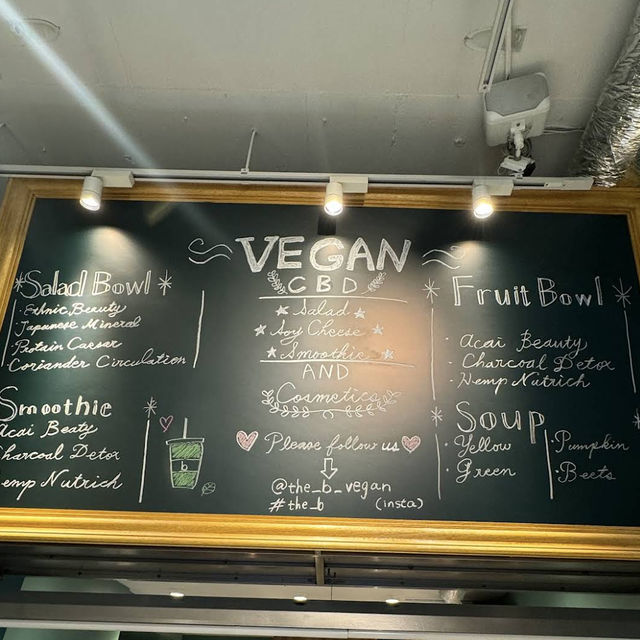 VEGAN
CBD
Salad
Soy Cheese
Smoothie
AND
Cosmetics
Please follow us
@the_b_vegan
#the_b (insta)
Salad Bowl
Ethnic Beauty
Japanese Mineral
Protain Caesar
Coriander Circulation
Smoothie
Acai Beaty
Charcoal Detox
Hemp Nutrich
b
Fruit Bowl
· Acai Beauty
· Charcoal Detox
· Hemp Nutrich
Soup
· Yellow
· Green
· Pumpkin
· Beets